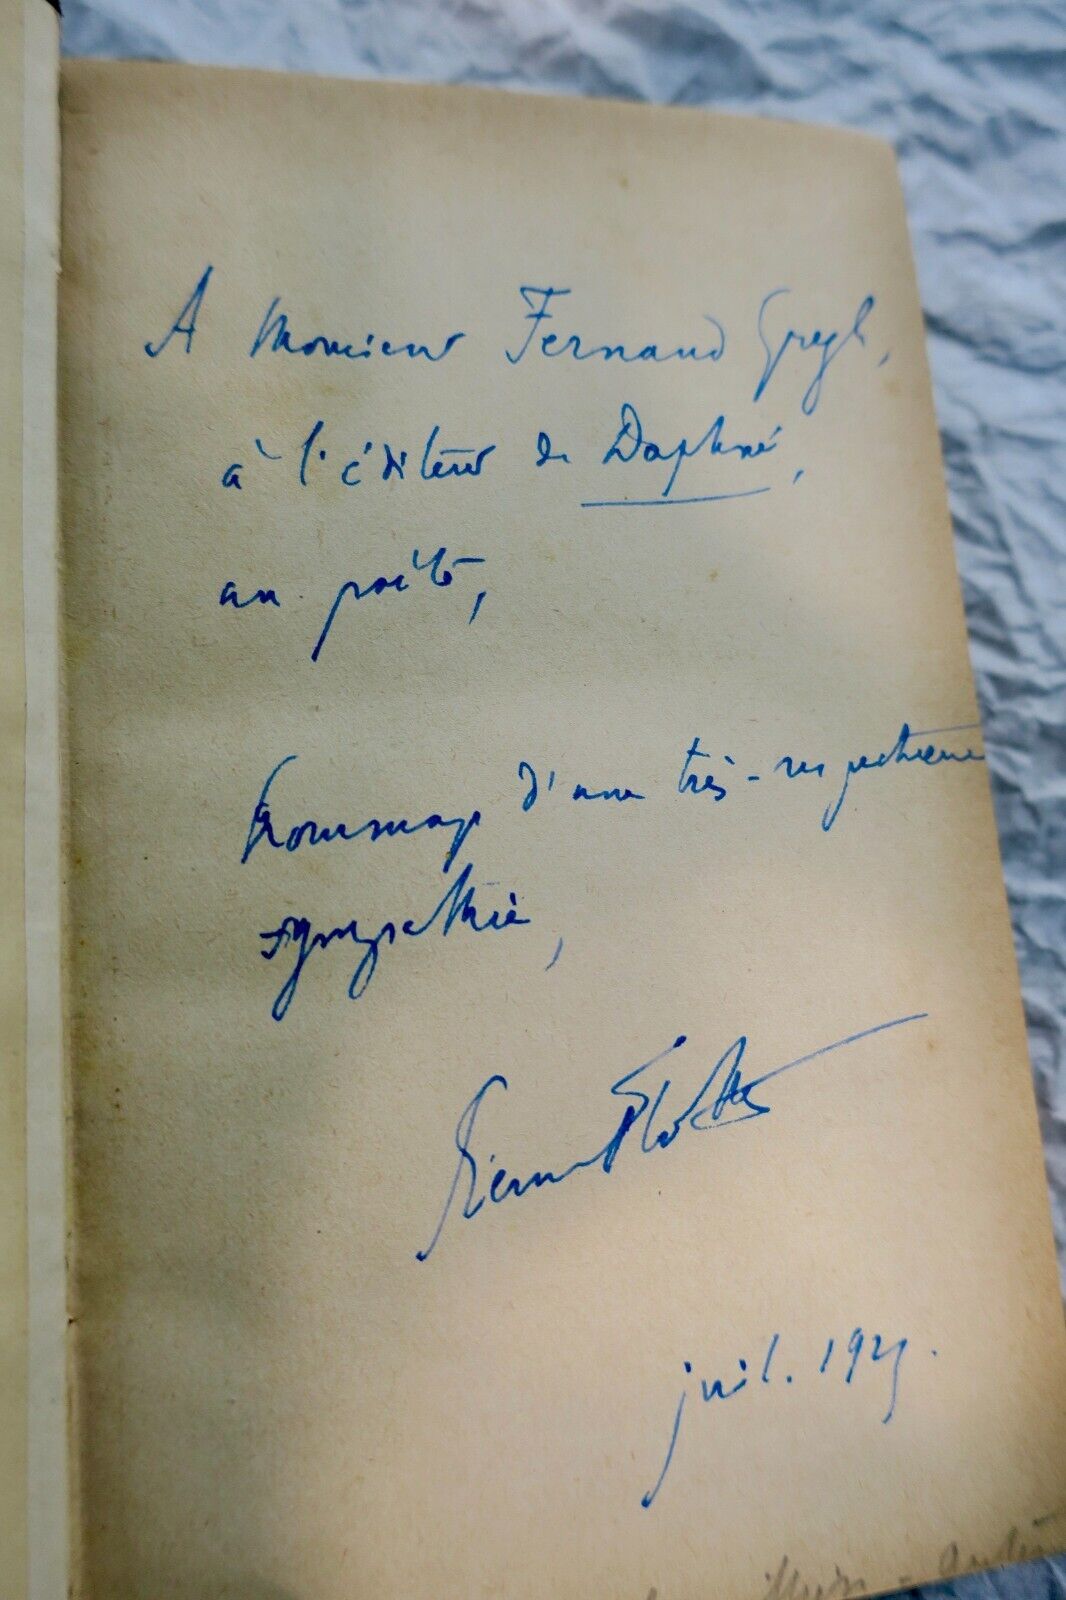 A Monsieur Fernand Gregh,
à l'éditeur de Daphné,
au poète,
hommage d'une très-respectueuse
sympathie,
Pierre Flottes
juil. 1925.